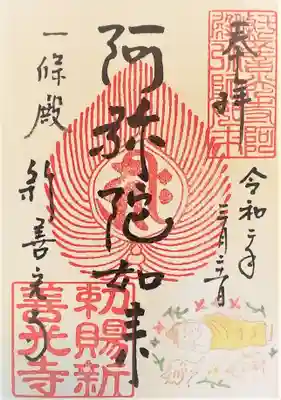 奉拝
令和二年
三月
阿弥陀如来
一條殿 新善光寺
勅賜新
善光寺